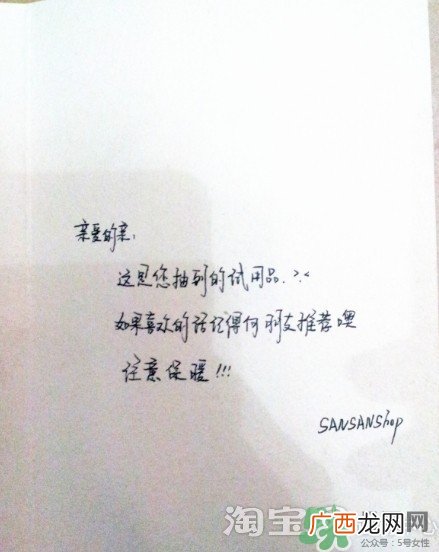 亲爱的亲,
这是您抽到的试用品.>.<
如果喜欢的话记得向朋友推荐噢
注意保暖!!!
SANSANShop
淘宝
广西龙网网
公众号:5号女性